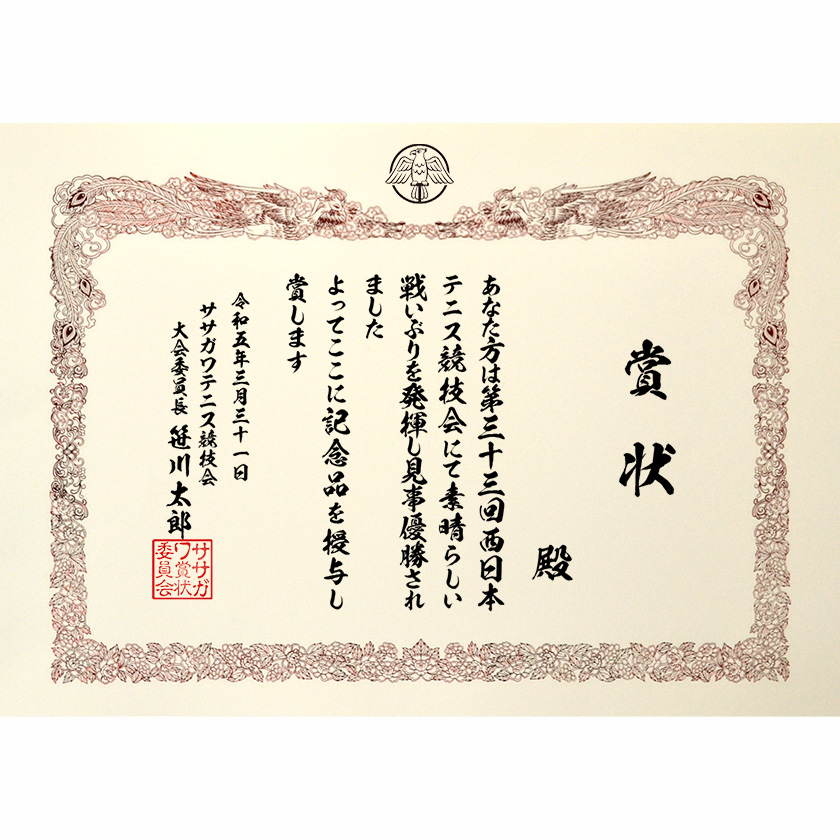 賞状
殿
あなた方は第三十三回西日本
テニス競技会にて素晴らしい
戦いぶりを発揮し見事優勝され
ました
よってここに記念品を授与し
賞します
令和五年三月三十一日
ササガワテニス競技会
大会委員長 笹川太郎
ササガ
ワ賞状
委員会